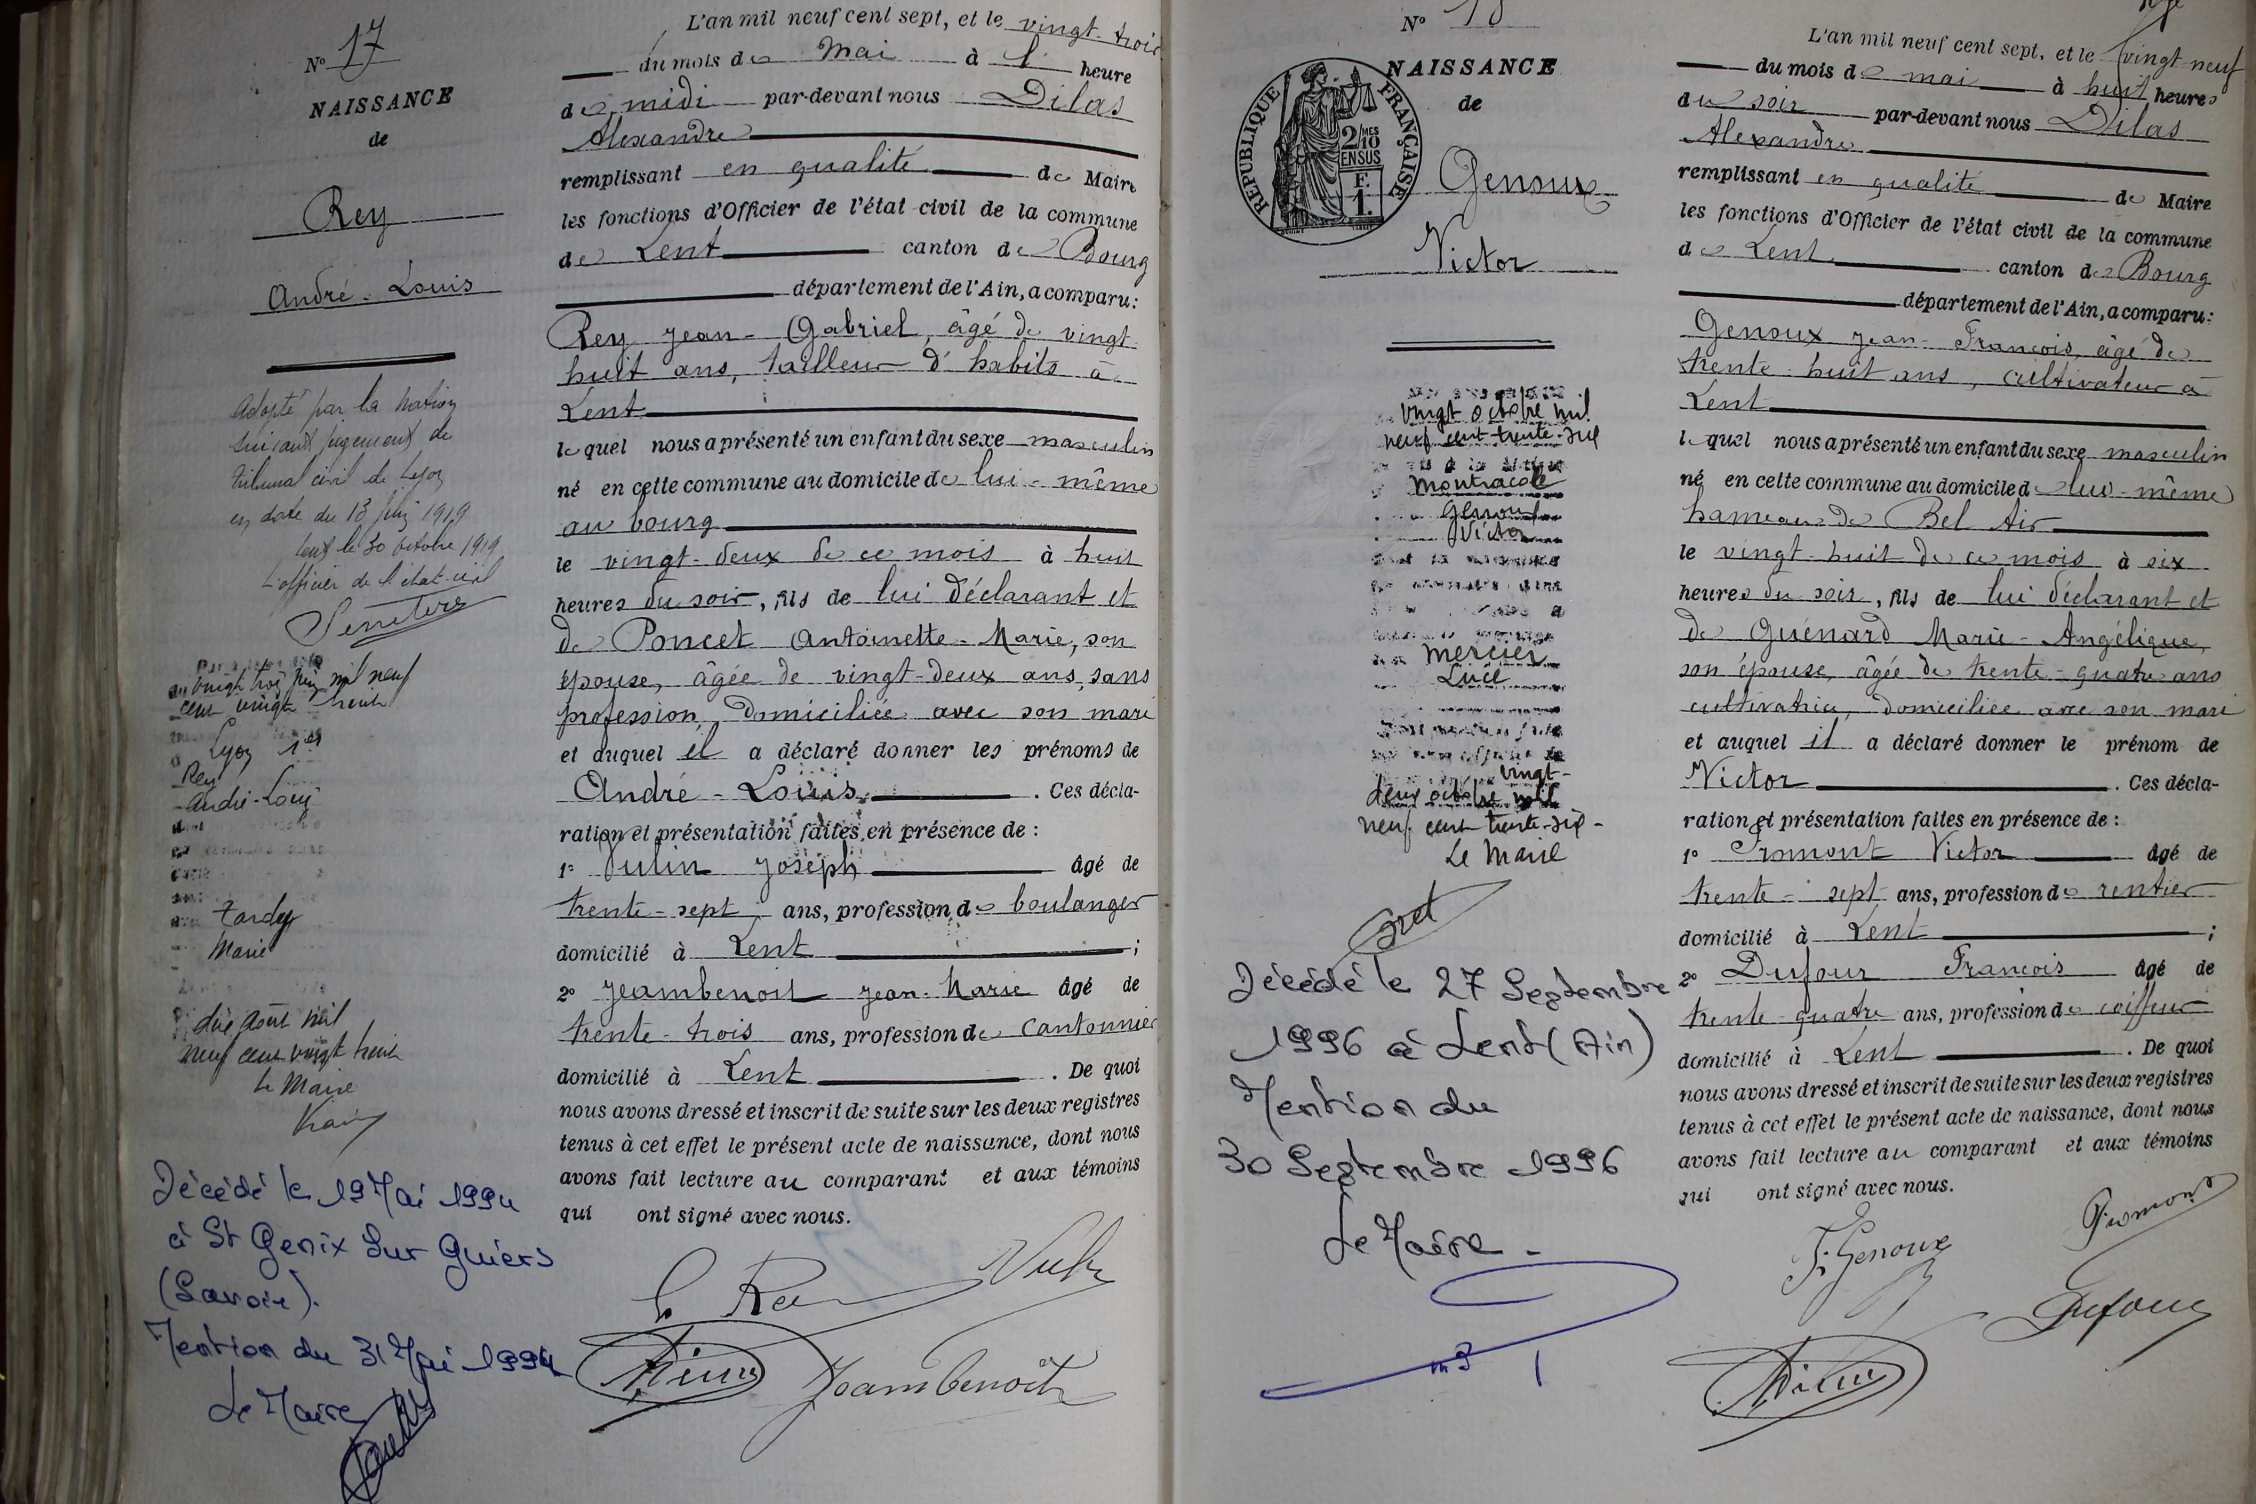 N° 17
NAISSANCE
de
Rey
André-Louis
adopté par la Nation
suivant jugement du
tribunal civil de Lyon
en date du 13 juin 1919
Lent le 30 octobre 1919
L'officier de l'état-civil
vingt trois juin mil neuf
cent vingt huit
Lyon 1er
Rey
André-Louis
Tardy
Marie
dix août mil
neuf cent vingt huit
Le Maire
Décédé le 19 Mai 1994
à St Genix sur Guiers
(Savoie).
Mention du 31 Mai 1994
Le Maire
L'an mil neuf cent sept, et le vingt-trois
du mois de Mai à 1 heure
de midi par-devant nous Dilas
Alexandre
remplissant en qualité de Maire
les fonctions d'Officier de l'état civil de la commune
de Lent canton de Bourg
département de l'Ain, a comparu:
Rey Jean-Gabriel, âgé de vingt
huit ans, tailleur d'habits à
Lent
lequel nous a présenté un enfant du sexe masculin
né en cette commune au domicile de lui-même
au bourg
le vingt-deux de ce mois à huit
heures du soir, fils de lui déclarant et
de Poncet Antoinette-Marie, son
épouse, âgée de vingt-deux ans, sans
profession, domiciliée avec son mari
et auquel il a déclaré donner les prénoms de
André-Louis. Ces décla-
ration et présentation faites en présence de :
1° Vulin Joseph âgé de
trente-sept ans, profession de boulanger
domicilié à Lent ;
2° Jeambenoit Jean-Marie âgé de
trente-trois ans, profession de cantonnier
domicilié à Lent . De quoi
nous avons dressé et inscrit de suite sur les deux registres
tenus à cet effet le présent acte de naissance, dont nous
avons fait lecture au comparant et aux témoins
qui ont signé avec nous.
Jeambenoit
N° 18
NAISSANCE
de
RÉPUBLIQUE FRANÇAISE
2/10 MES
EN SUS
F.
1.
Genoux
Victor
vingt octobre mil
neuf cent trente-six
Montracol
Genoux
Victor
Mercier
Lucie
vingt-
deux octobre mil
neuf cent trente-six-
Le Maire
Décédé le 27 Septembre
1996 à Lent (Ain)
Mention du
30 Septembre 1996
Le Maire -
L'an mil neuf cent sept, et le vingt neuf
du mois de mai à huit heures
du soir par-devant nous Dilas
Alexandre
remplissant en qualité de Maire
les fonctions d'Officier de l'état civil de la commune
de Lent canton de Bourg
département de l'Ain, a comparu:
Genoux Jean-François, âgé de
trente-huit ans, cultivateur à
Lent
lequel nous a présenté un enfant du sexe masculin
né en cette commune au domicile de lui-même
hameau de Bel Air
le vingt-huit de ce mois à six
heures du soir, fils de lui déclarant et
de Guénard Marie-Angélique,
son épouse, âgée de trente-quatre ans
cultivatrice, domiciliée avec son mari
et auquel il a déclaré donner le prénom de
Victor . Ces décla-
ration et présentation faites en présence de :
1° Promont Victor âgé de
trente-sept ans, profession de rentier
domicilié à Lent ;
2° Dufour François âgé de
trente-quatre ans, profession de coiffeur
domicilié à Lent . De quoi
nous avons dressé et inscrit de suite sur les deux registres
tenus à cet effet le présent acte de naissance, dont nous
avons fait lecture au comparant et aux témoins
qui ont signé avec nous.
F. Genoux
Promont
Dufour